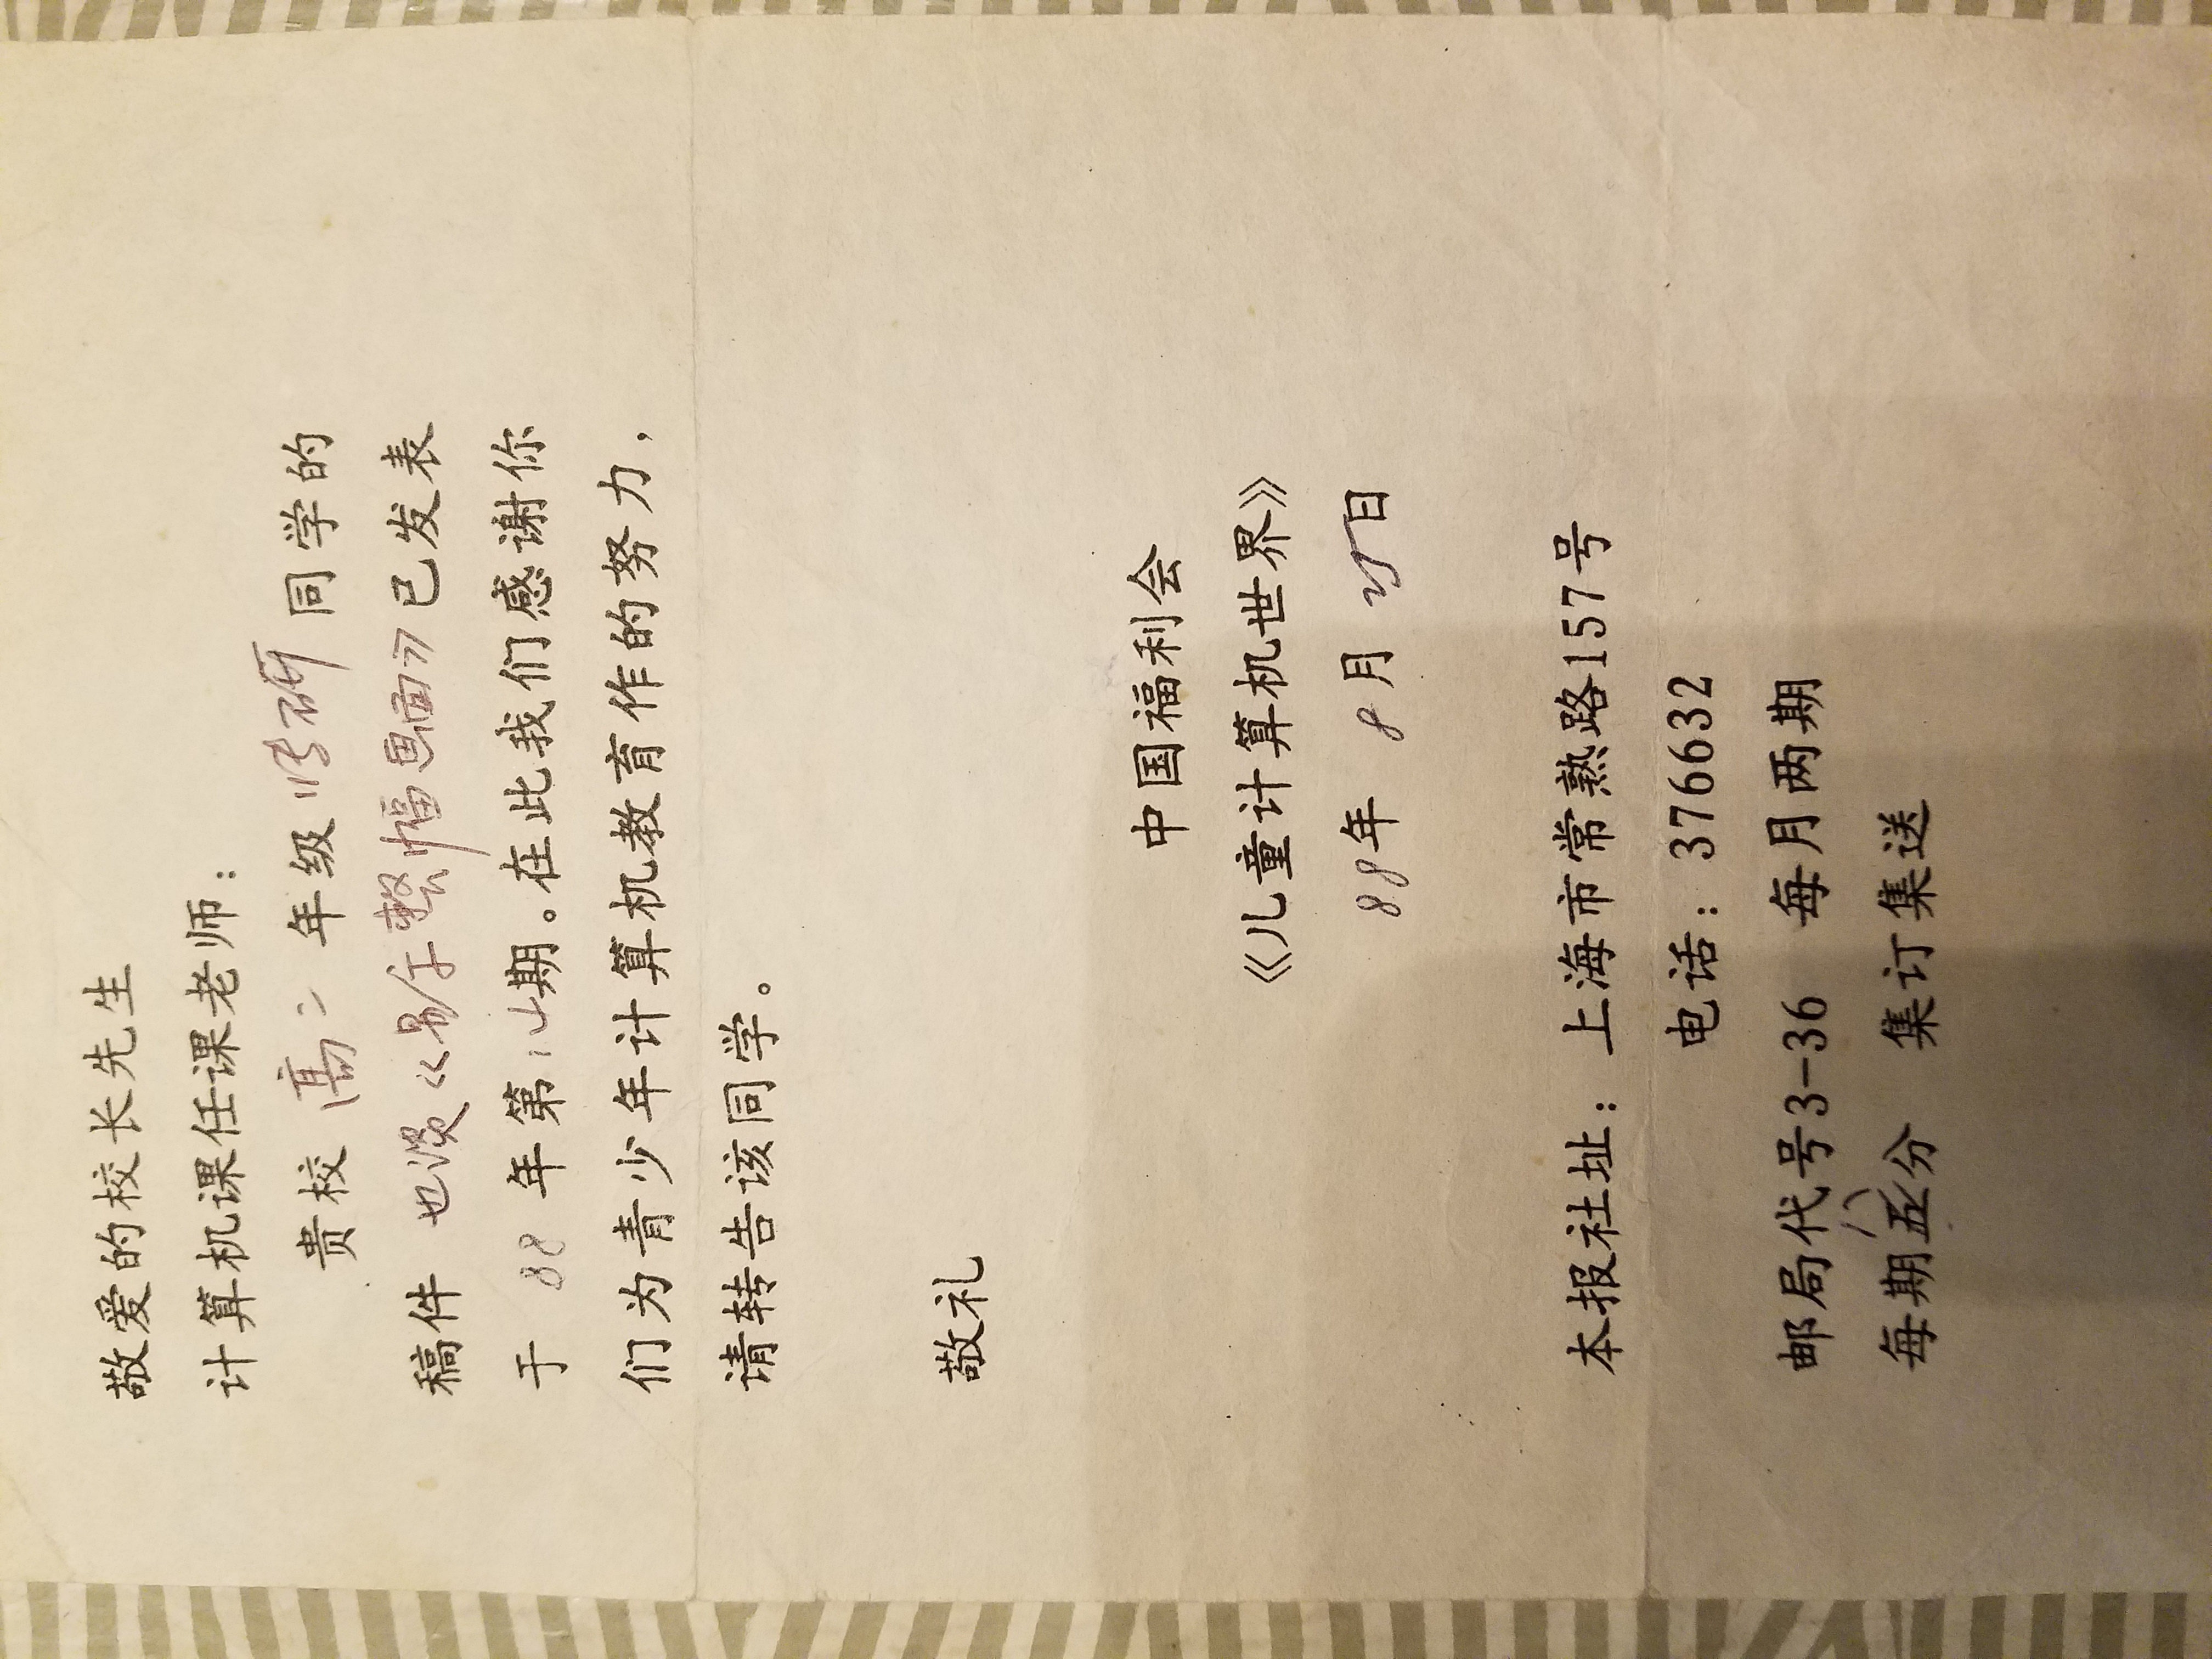 敬爱的校长先生
计算机课任课老师：
贵校 高二 年级 研 同学的
稿件 也谈《 整幅画面》已发表
于 88 年第14期。在此我们感谢你
们为青少年计算机教育作的努力，
请转告该同学。
敬礼
中国福利会
《儿童计算机世界》
88年 8月 25日
本报社址：上海市常熟路157号
电话：376632
邮局代号3-36 每月两期
每期五分 集订集送